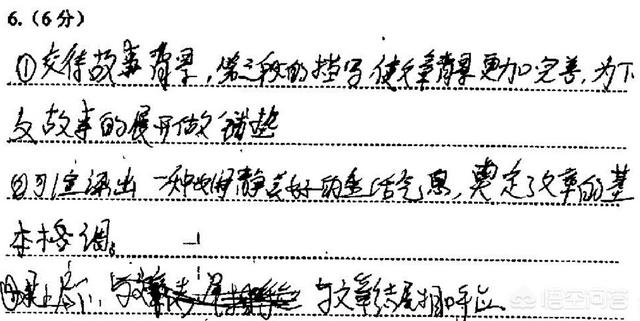 6.(6分)
①交待故事背景,第三段的描写使文章背景更加完善,为下
文故事的展开做铺垫
②引渲染出一种安静美好的生活气息,奠定了文章的基
本格调。
③ 与文章结尾相呼应
悟空问答